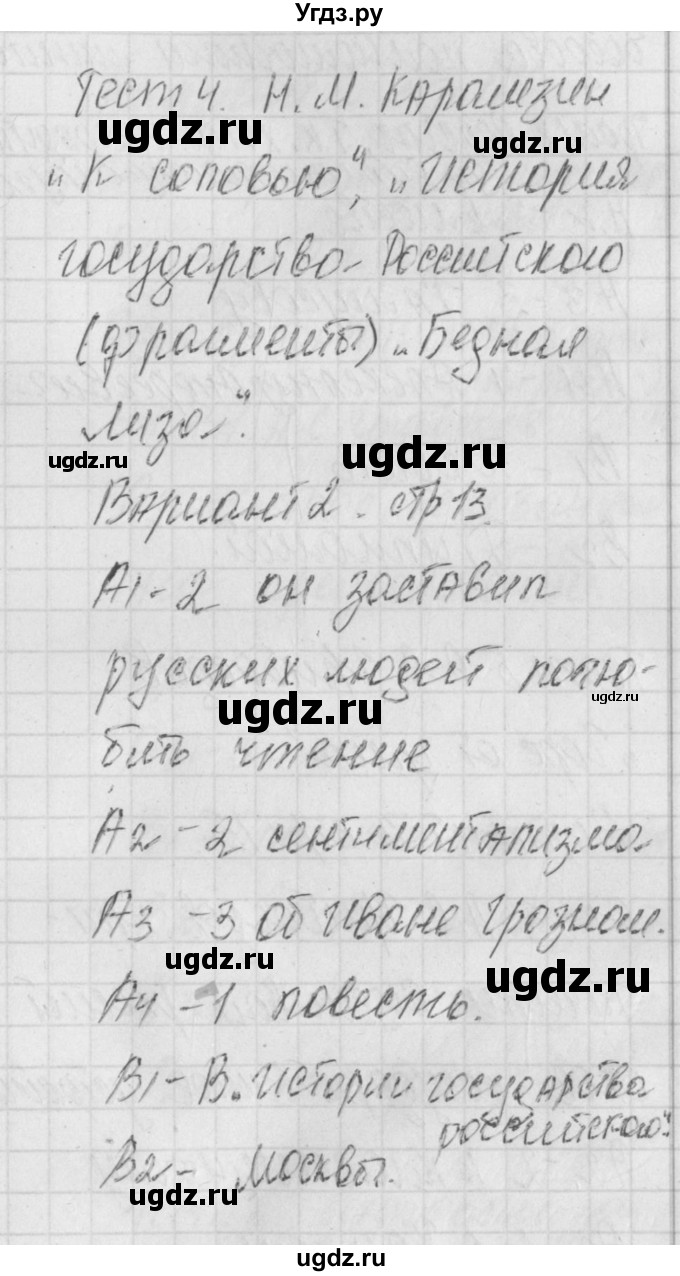 Угдз.ру
Тест 4. Н. М. Карамзин
„К соловью“, „История
государства Российского
(фрагменты) „Бедная
Лиза“.
Вариант 2. стр 13.
А1 - 2 он заставил
русских людей полю-
бить чтение
А2 - 2 сентиментализма
А3 - 3 об Иване Грозном.
А4 - 1 повесть.
В1 - В „Истории государства
российского“.
В2 - Москвы.
ugdz.ru
ugdz.ru
ugdz.ru
ugdz.ru
ugdz.ru
ugdz.ru
ugdz.ru
ugdz.ru
ugdz.ru
ugdz.ru